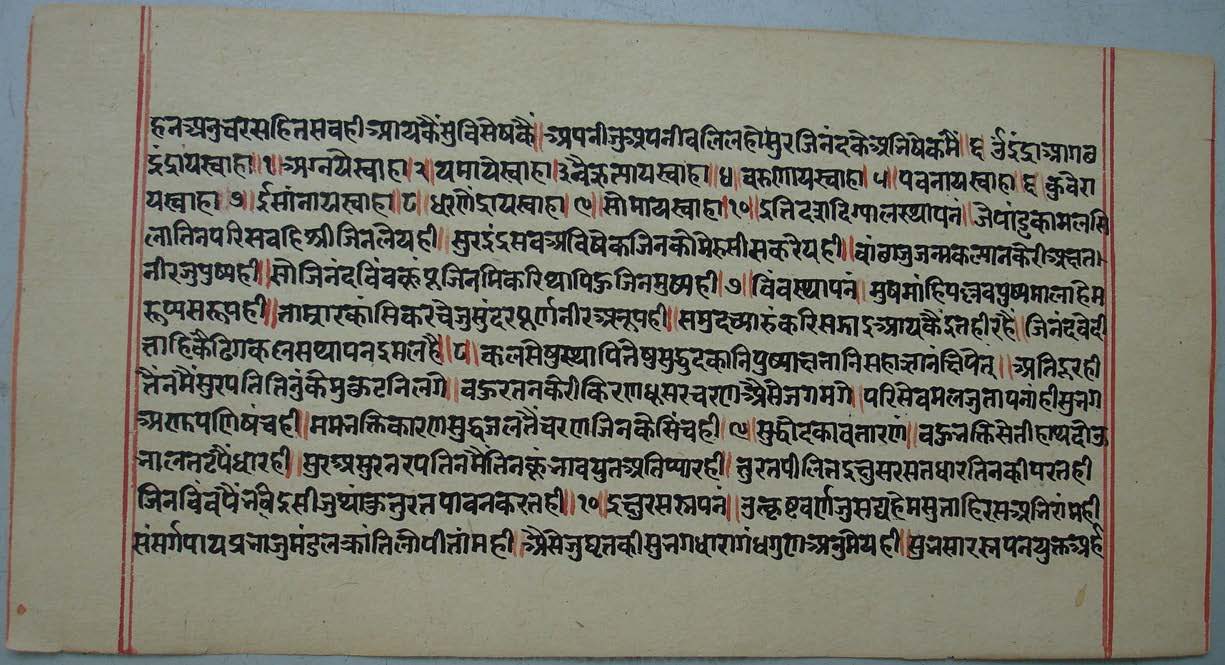 हनअनुचरसहितसबही आयकैसुविसेषकैं॥ अपनीजुअपनीवलिलहौसुरजिनंदकैअभिषेकमैं॥ ६ ॐइंद्राआगछ
इंद्रायस्वाहा १ अग्नयैस्वाहा २ यमायैस्वाहा ३ नैऋत्यायस्वाहा ४ वरुणायस्वाहा ५ पवनायस्वाहा ६ कुवेरा
यस्वाहा ७ ईसांनायस्वाहा ८ धरणेंद्रायस्वाहा ९ सोमायस्वाहा १० इतिदशदिग्पालस्थापनं जेपांडुकामलसि
लातिनपरिसवहिश्रीजिनलेयही सुरइंद्रसवअविषेकजिनकौमेरुसीसकरेयही वांछाजुजन्मकल्यानकेरीअक्षता
नीरजुपुष्पही सोजिनंदविंवकूंपूजिनमिकरिथापिऊजिनमुष्पही ७ विंवस्थापनं मुषमांहिपल्लवपुष्पमालाहेम
रूप्यसरूपही ताम्रारकांसिकरचैजुसुंदरपूर्णनीरअनूपही समुदच्यारुंकरिसजाइआयकैइतहीरहै जिनंदवेदी
ताहिकैढिगकलसथापनइमलहै ८ कलसेषुस्थापितेषुमुद्रुदकानिपुष्पाक्षतानिसहाज्ञानंक्षिपेत् अतिदूरही
तैनमैंसुरपतितिनुंकेमुकटनिलगे वऊरतनकेरीकिरणधूसरचरणअैसैजगमगे परिसेवमलजुतापनांहीसुनग
अरूपपणिषंचही ममभक्तिकारणसुद्धजलतैंचरणजिनकैसिंचही ९ सुद्धोदकावतारणं वऊभक्तिसेतीहाथदोऊ
भालतटपैंधारही सुरअसुरनरपतिनमैंतिनकूंभावयुतअतिप्यारही तुरतपीलितइक्षुसरसतधारतिनकीपरतही
जिनविंवपैंनंवैइसीजुथांऊतुरतपावनकरतही १० इक्षुरसस्नपनं नुत्कृष्टवर्णजुसद्यहेमसुताहिरसअभिरांमही
संसर्गपायप्रभाजुमंडलक्रांतिलोपीतांमही अैसेजुघृतकीसुभगधारागंधगुणअनुंमेयही सुभसारस्नपनयुक्तअर्ह